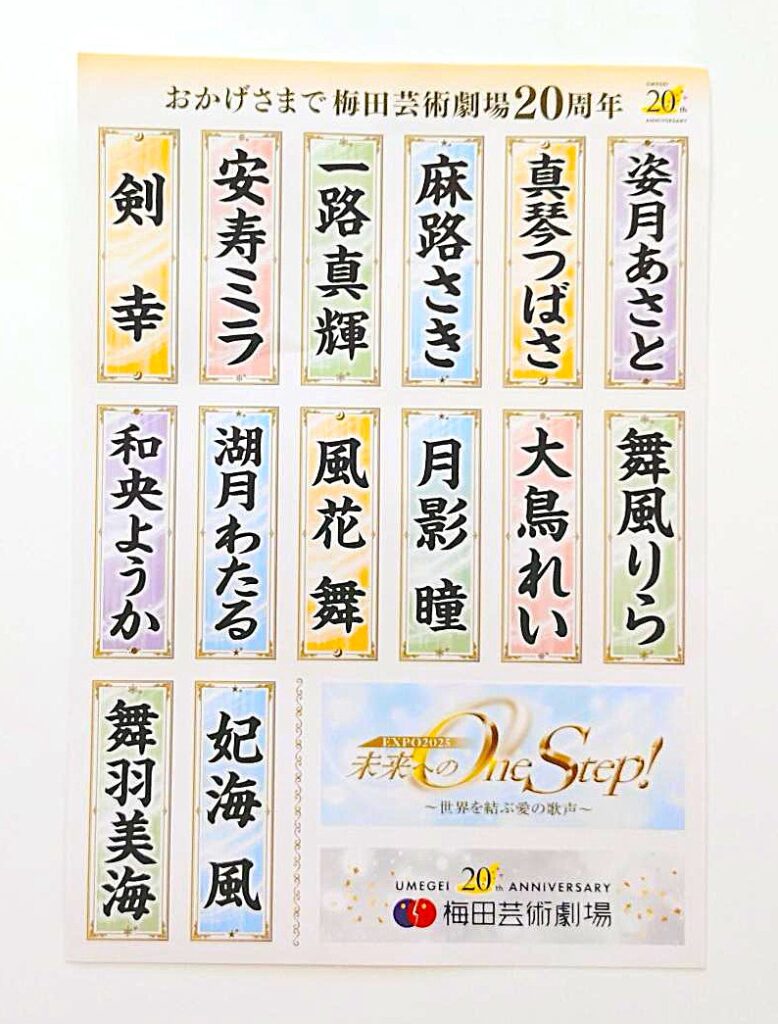 おかげさまで 梅田芸術劇場20周年
UMEGEI
20th
ANNIVERSARY
剣 幸
安寿ミラ
一路真輝
麻路さき
真琴つばさ
姿月あさと
和央ようか
湖月わたる
風花 舞
月影 瞳
大鳥れい
舞風りら
舞羽美海
妃海 風
EXPO2025
未来へのOne Step!
~世界を結ぶ愛の歌声~
UMEGEI 20th ANNIVERSARY
梅田芸術劇場